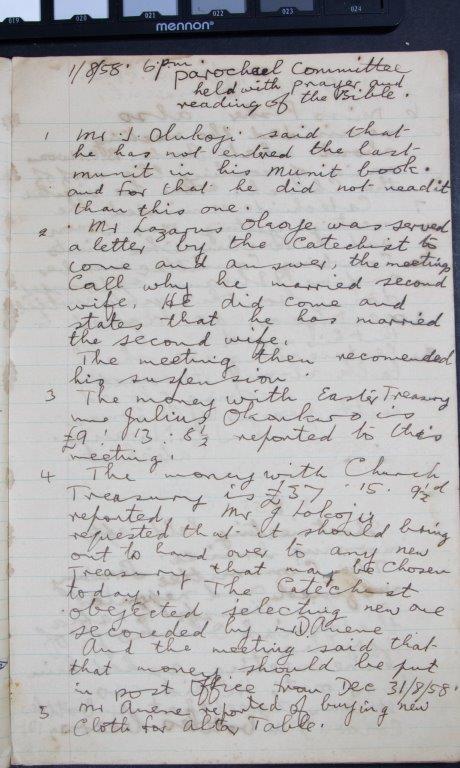 019 020 021 022 023 024
mennon
1/8/58. 6 p.m. parocheel Committee
held with prayer and
reading of the Bible.
1 Mr J. Olukoji said that
he has not entered the last
munit in his munit book.
and for that he did not read it
than this one.
2 Mr Lazarus Okoye was served
a letter by the Catechist to
come and answer, the meeting
Call why he married second
wife. He did come and
states that he has married
the second wife.
The meeting then recomended
his suspension.
3 The money with Easter Treasury
Julius Okonkwo is
£9 : 13 : 8½ reported to this
meeting.
4 The money with Church
Treasury is £37 . 15 . 9½d
reported. Mr J
requested that it should bring
out to hand over to any new
Treasury that may be chosen
today. The Catechist
objected selecting new one
seconded by Anene
And the meeting said that
that money should be put
in post office from Dec 31/8/58.
5 Mr Anene reported of buying new
Cloth for alter Table.